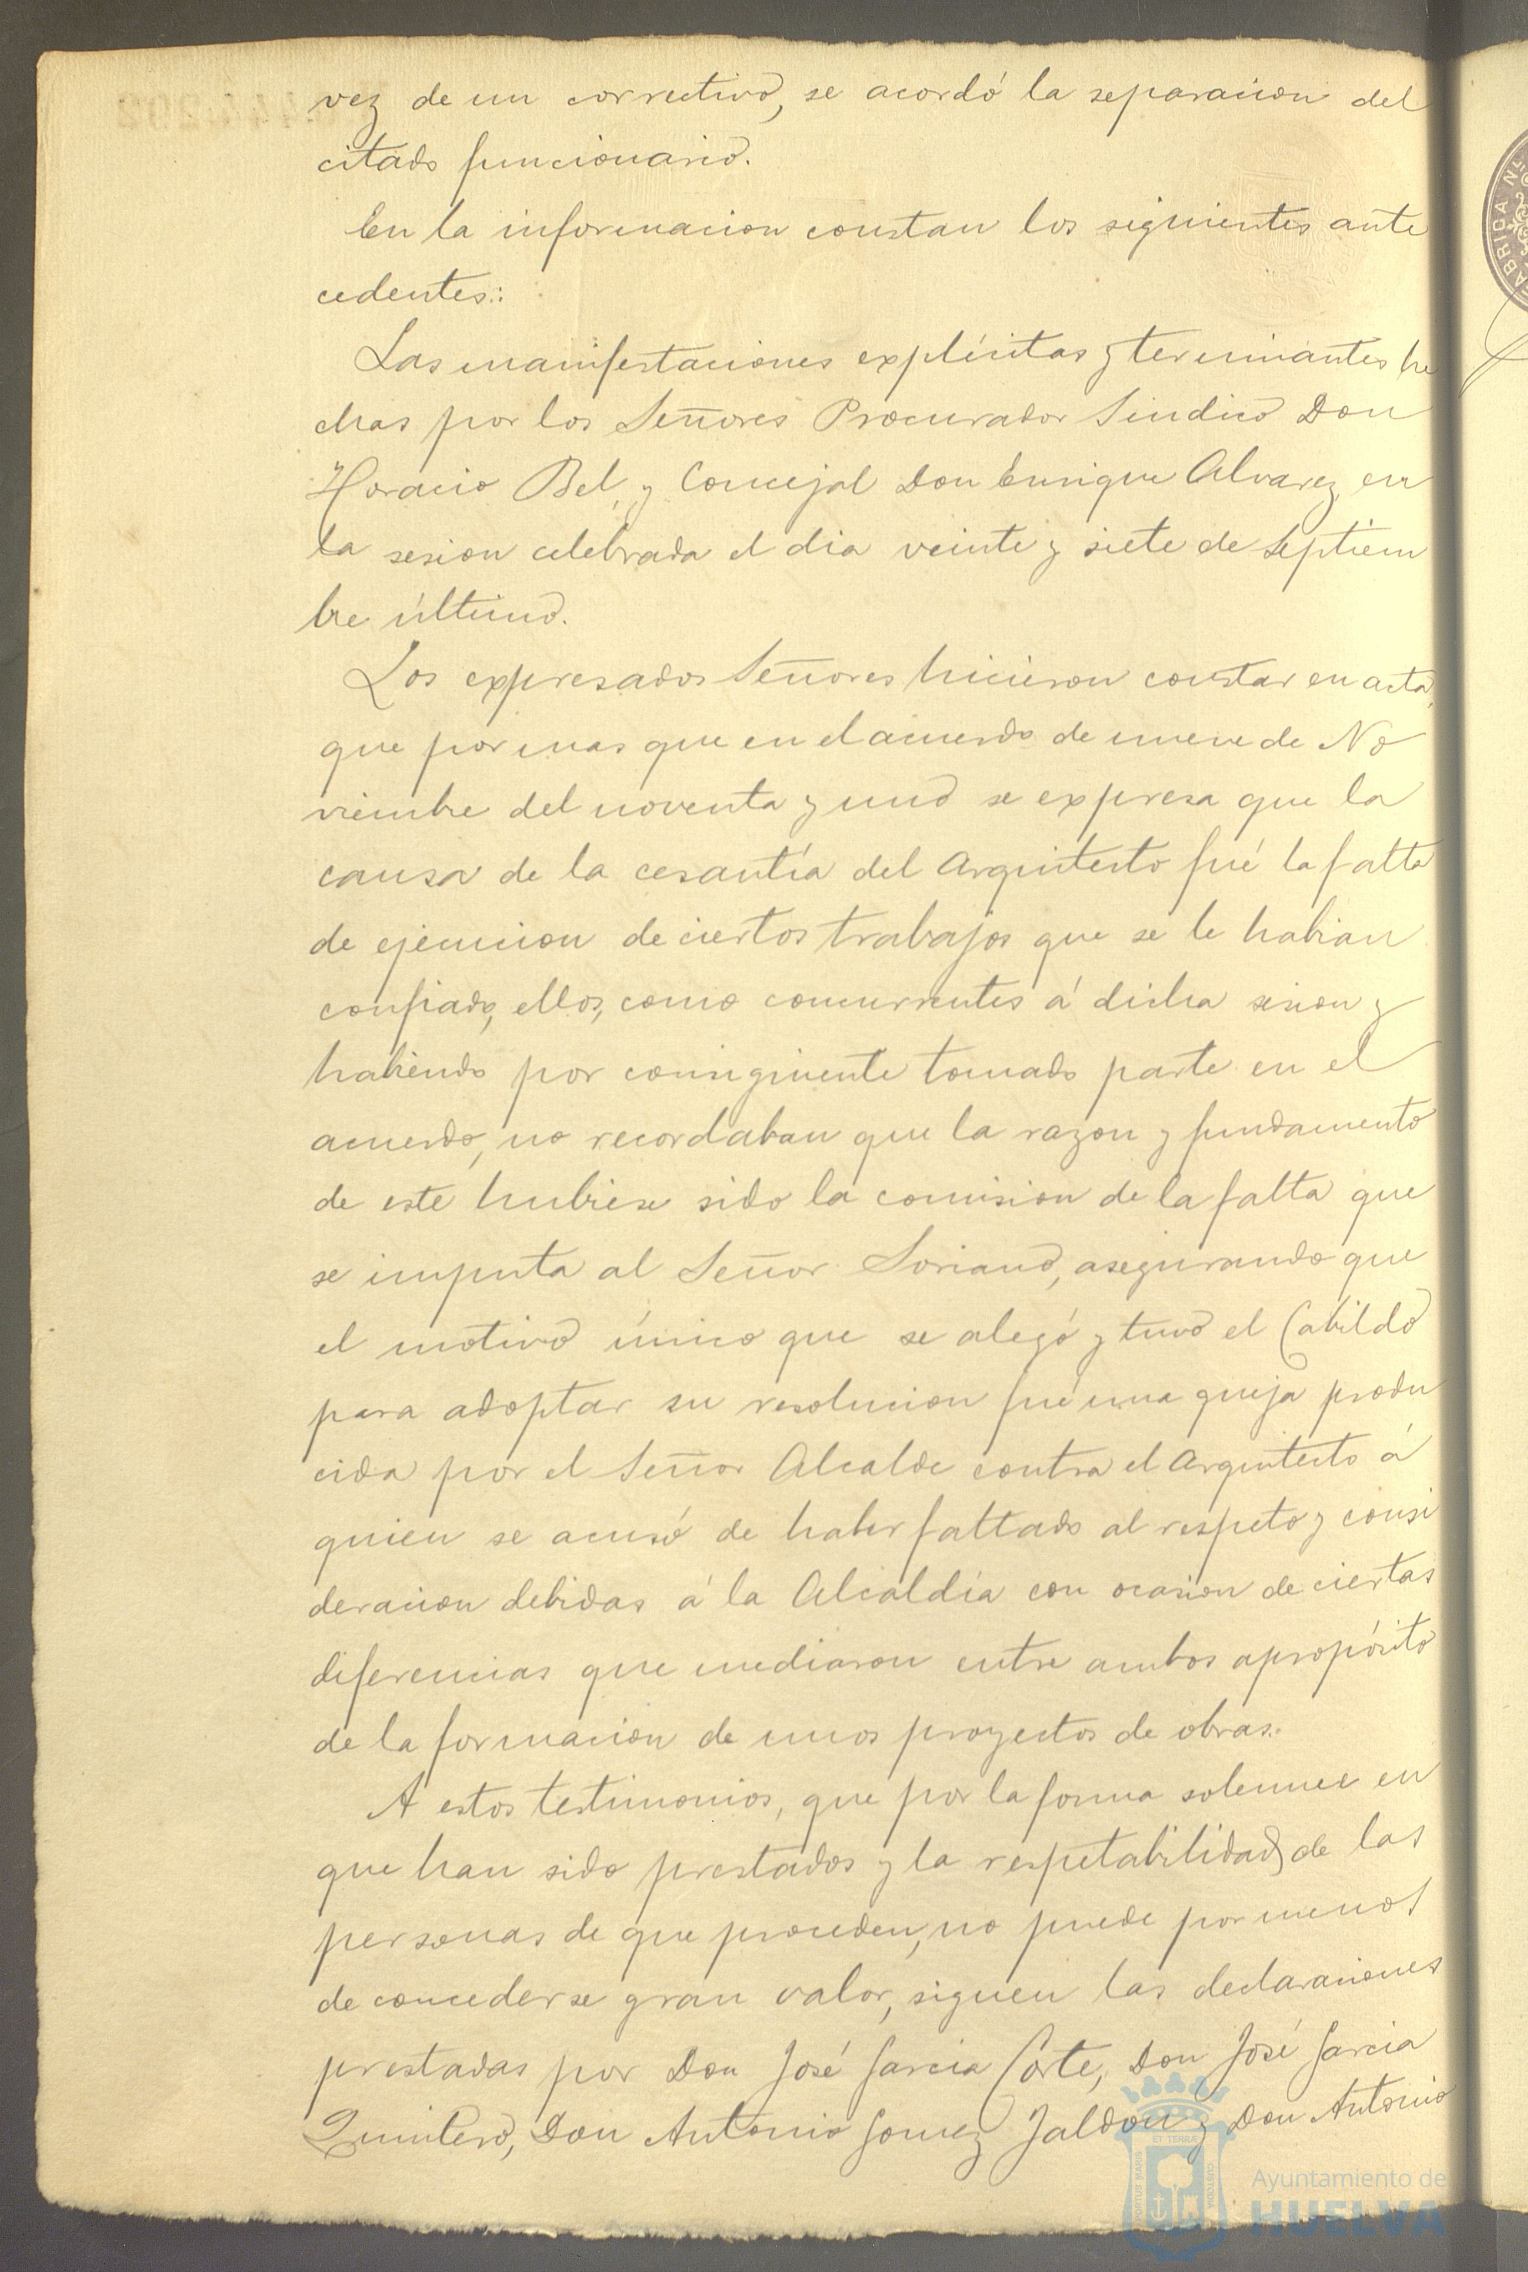 vez de un correctivo, se acordó la separacion del
citado funcionario.
En la informacion constan los siguientes ante
cedentes:
Las manifestaciones explícitas y terminantes he
chas por los Señores Procurador Sindico Don
Horacio Bel, y Concejal Don Enrique Alvarez en
la sesion celebrada el dia veinte y siete de Septiem
bre último.
Los expresados Señores hicieron constar en acta,
que por mas que en el acuerdo de nueve de No
viembre del noventa y uno se expresa que la
causa de la cesantía del Arquitecto fué la falta
de ejecucion de ciertos trabajos que se le habian
confiado, ellos, como concurrentes á dicha sesion y
habiendo por consiguiente tomado parte en el
acuerdo, no recordaban que la razon y fundamento
de este hubiese sido la comision de la falta que
se imputa al Señor Soriano, asegurando que
el motivo único que se alegó y tuvo el Cabildo
para adoptar su resolucion fué una queja produ
cida por el Señor Alcalde contra el Arquitecto á
quien se acusó de haber faltado al respeto y consi
deracion debidas á la Alcaldía con ocasion de ciertas
diferencias que mediaron entre ambos apropósito
de la formacion de unos proyectos de obras.
A estos testimonios, que por la forma solemne en
que han sido prestados y la respetabilidad de las
personas de que proceden, no puede por menos
de concederse gran valor, siguen las declaraciones
prestadas por Don José Garcia Corte, Don José Garcia
Quintero, Don Antonio Gomez Jaldon y Don Antonio
Ayuntamiento de
HUELVA